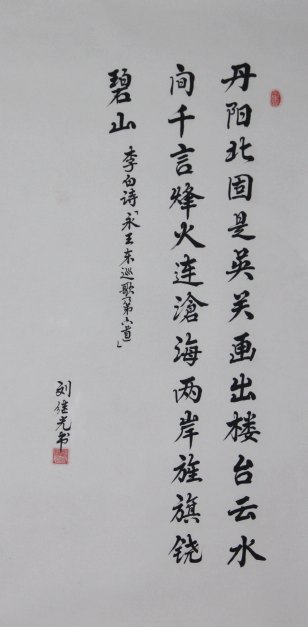 丹阳北固是英关画出楼台云水
间千言烽火连滄海两岸旌旗铙
碧山
李白诗「永王东巡歌第六首」
刘继光书